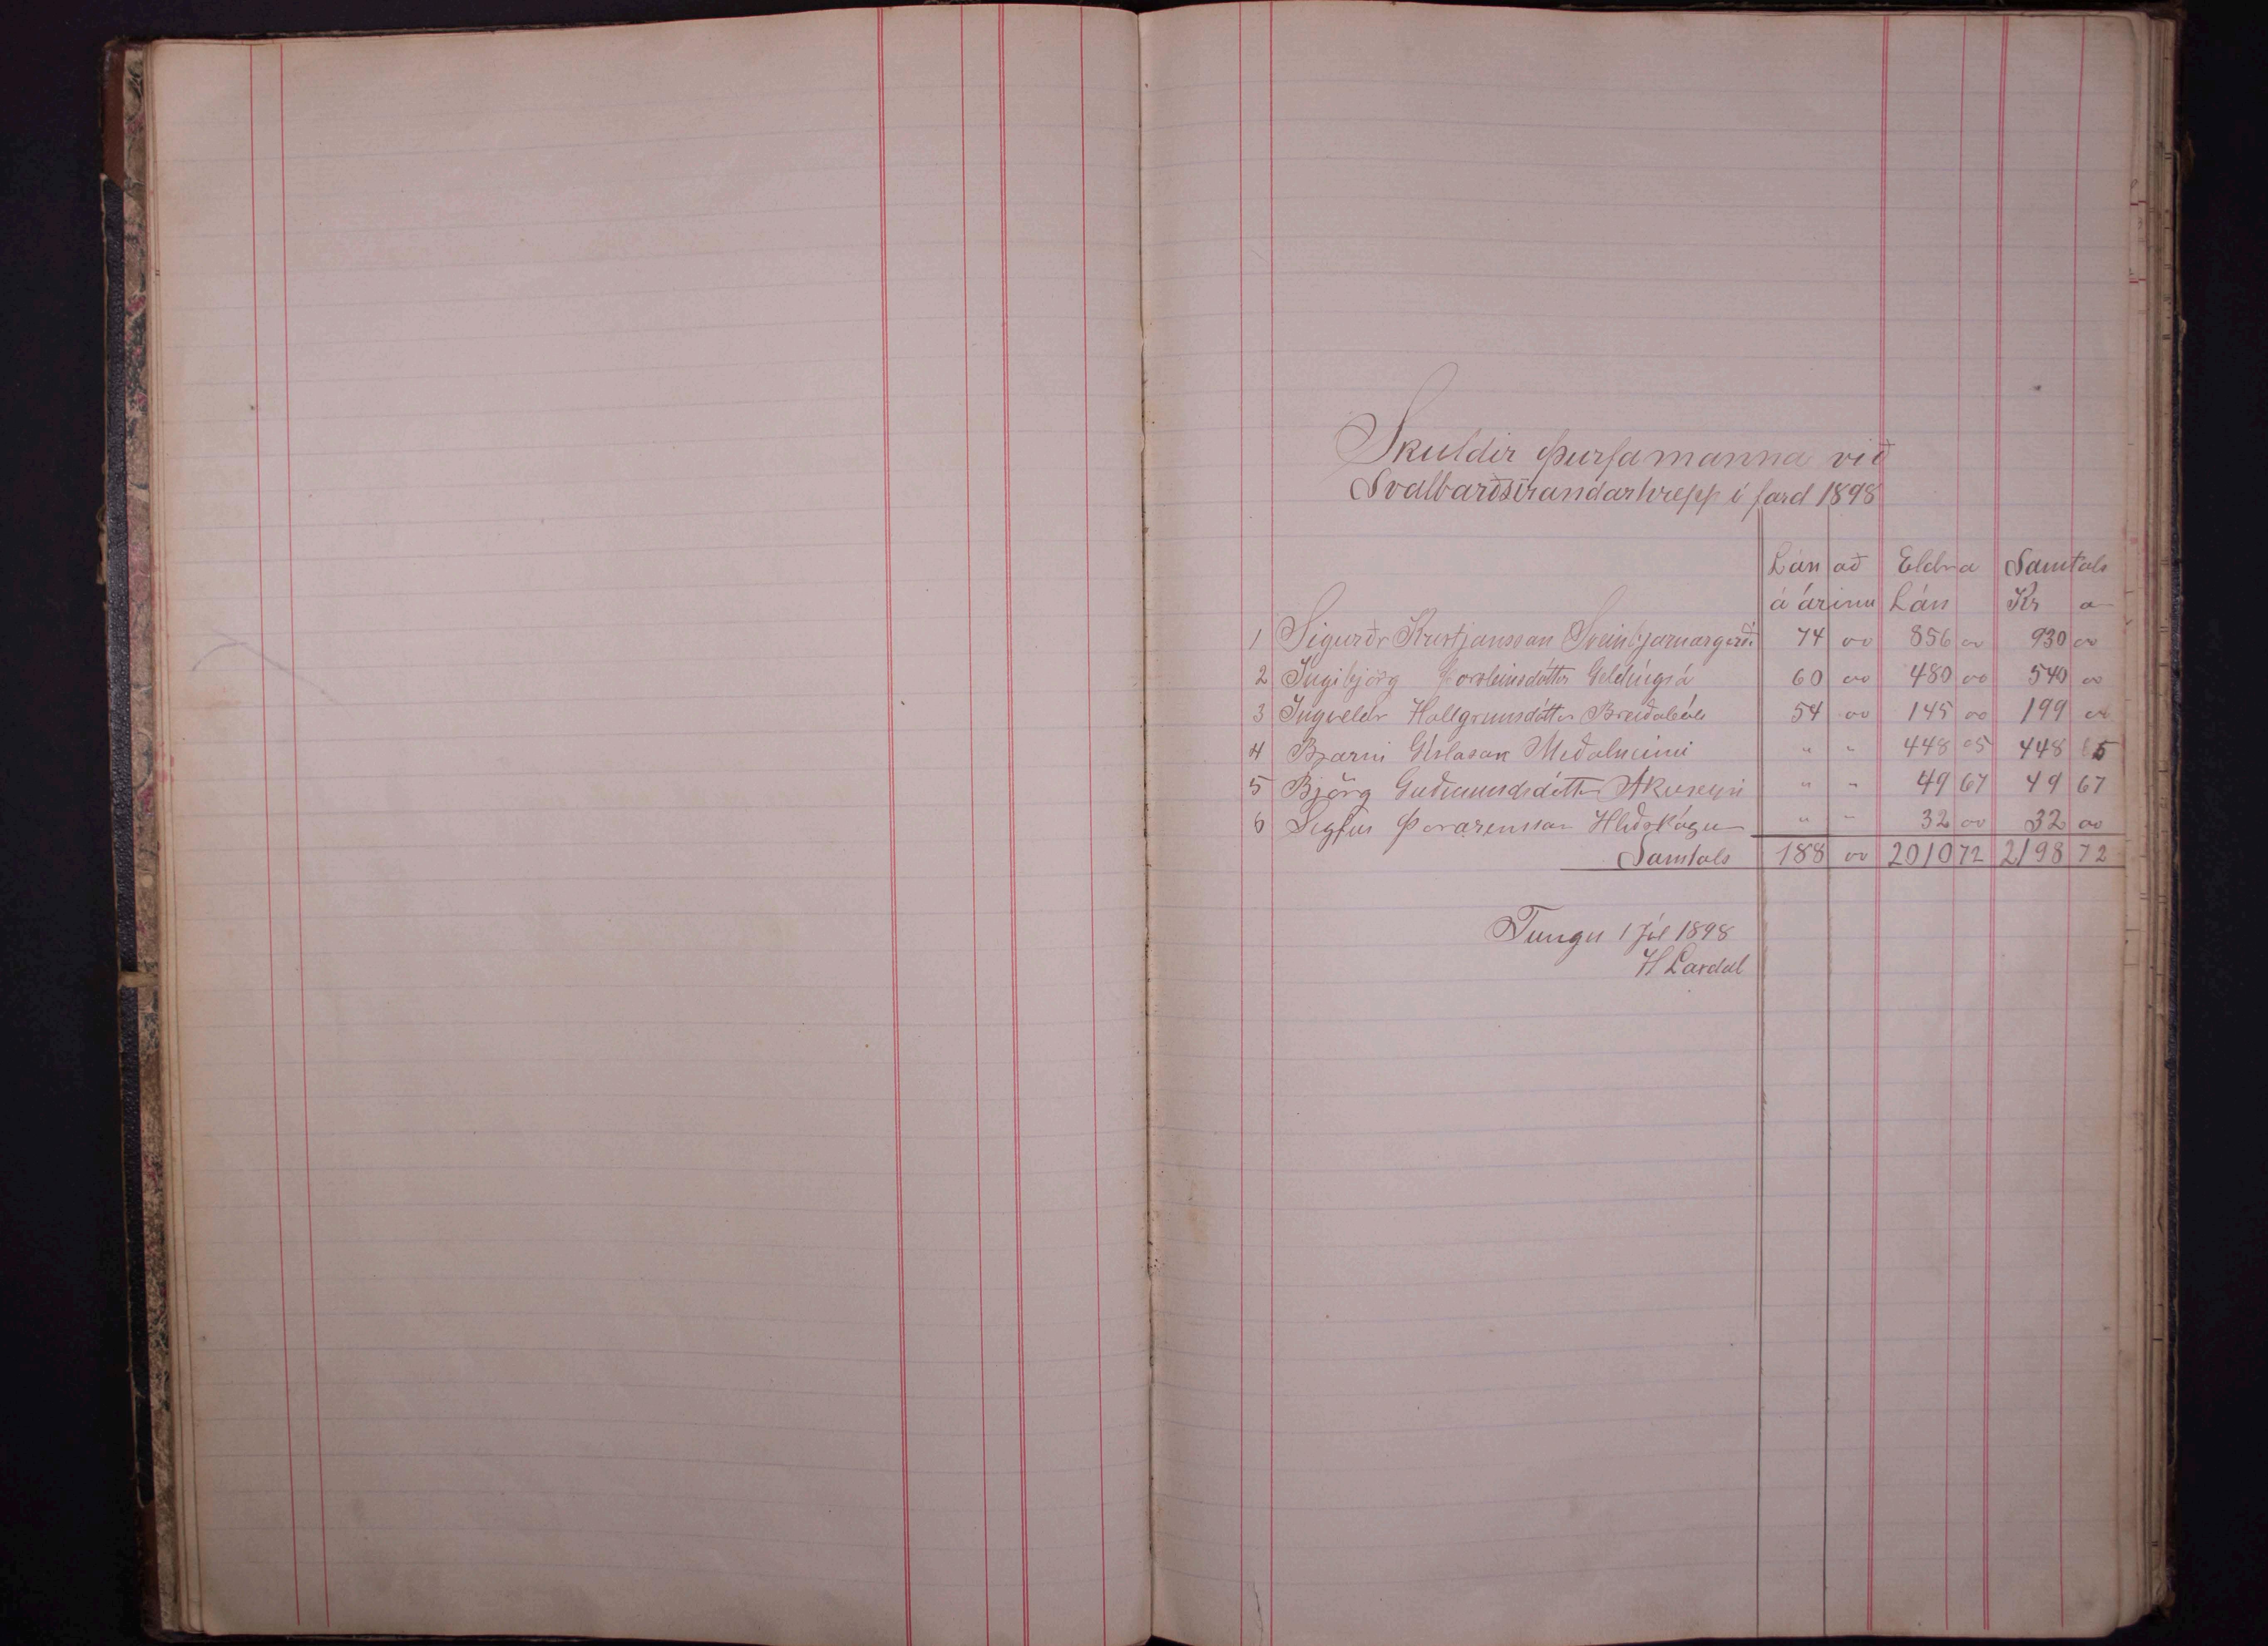 Skuldir Þurfamanna við
Svalbarðsstrandarhrepp í fard 1898
Lán að Eldra Samtals
á árinu Lán Kr a
1 Sigurðr Kristjansson Sveinbjarnargerði 74 00 856 00 930 00
2 Ingibjörg Þorsteinsdóttir Geldingsá 60 00 480 00 540 00
3 Ingveldr Hallgrimsdóttir Breiðabóli 54 00 145 00 199 00
4 Bjarni Gislason Meðalheimi " " 448 05 448 05
5 Björg Guðmundsdóttir Akureyri " " 49 67 49 67
6 Sigfus Þorarensson Hliðskógum " " 32 00 32 00
Samtals 188 00 2010 72 2198 72
Tungu 1 Júl 1898
H Laxdal